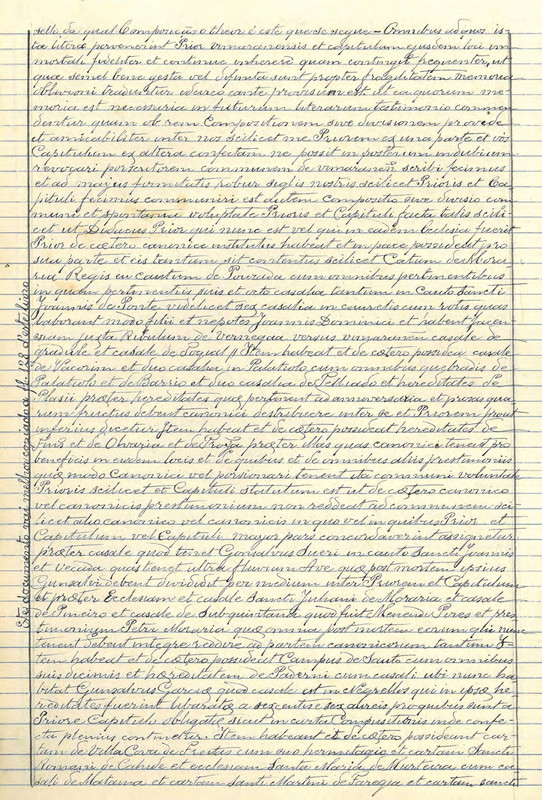 sello da qual Composição o theor é este que se segue – Omnibus ad quos is-
ta litera pervenerint Prior vimaranensis et capitulum ejusdem loci im
mortali fideliter et continue inherere quam contingit frequenter, ut
quæ semel bene gesta vel definita sunt propter fragilitatem memoriæ
oblivioni traduntur
moria est necessaria in futurum literarum testimonio commen
dentur quam ob rem Compositionem sive divisionem provide
et amicabiliter inter nos scilicet me Priorem ex una parte et vos
Capitulum ex altera confectam ne possit in posterum in dubium
revocari per scriptorem communem de vimaranes scribi fecimus
et ad majus firmitatis robur sigilis nostris scilicet Prioris et Ca
pituli fecimus communiri est autem compositio sive divisio com
muni et spontania voluptate Prioris et Capituli facta talis scili-
cet ut Didacus Prior qui nunc est vel qui in eadem Ecclesia fuerit
Prior de cætero canonice institutus habeat et in pace possideat pro
sua parte et eis tantum sit contentus scilicet
Regis in Cautum de Pousada cum omnibus pertinentibus
in quam pertinentiis suis et orto casalia tantum in Cauto Sancti
Joannis de Ponte videlicet sex casalia in
laborant modo filii et nepotes Joannis Dominici et habent jacen-
juxta Rivulum de Vernegaa versus vimaranem casale de
et casale de Togual // Item habeat et de cætero possideat casale
de Pacorim et duo casalia in Palatiolo cum omnibus quebradis de
Palatiolo et de Barrio et duo casalia de Selhiado et hereditates de
præter hereditates quæ pertinent ad anniversaria et prosas qua
rum fructus debent canonici destribuere inter se et Priorem prout
inferius dicetur Item habeat et de cætero possideat hereditates de
et de Olvaria et de præter illas quas canonici tenent pro
beneficiis in eisdem locis et de quibus et de omnibus aliis prestimoniis
quæ modo Canonici vel porsionari tenent ita communi voluntate
Prioris scilicet et Capituli statutum est ut de cætero canonico
vel canonicis prestimonium non reddeat ad communem sci-
licet alio canonico vel canonicis in quo vel in quibus Prior et
Capitulum vel Capituli major pars concordaverint assignetur
præter casale quod tenet Gonsalvus Sueri in cauto Sancti Joannis
et Vecada quas tenet ultra fluvium Ave quæ post mortem ipsius
Gunsalvi debent dividi per medium inter Priorem et Capitulum
et præter Ecclesiam et casale Sancti Juliani de Moraria et casale
de Pineiro et casale de Subquintana quod fuit Menendi Peres et pres
timonium Petri Moraria quæ omnia post mortem eorum qui nunc
tenent debent integre reddire ad partem canonicorum tantum I-
tem habeat et de cætero possideat Campus de Sauto cum omnibus
suis decimis et hæreditatem de Paderni cum casali ubi nunc ha
bitat Gunsalvus Garcia quod casale est in Negrellos qui in ipsæ he
reditates fuerint liberatæ a sexcentis sex aureis pro quibus sunt a
Priore Capituli obligatæ sicut in carta Compositionis inde confe-
cta plenius continetur. Item habeant et de cætero possideant car-
tam de Villa Cova de Prestis cum suo hermitagio et cartam Sancti
Romani de Cahide et ecclesiam Santa Maria de Murtaria cum ca
sali de Matama et cartam Santi Martini de Faregia et cartam sancti
Este documento vai melhor copiado a fl. 128 d'este livro